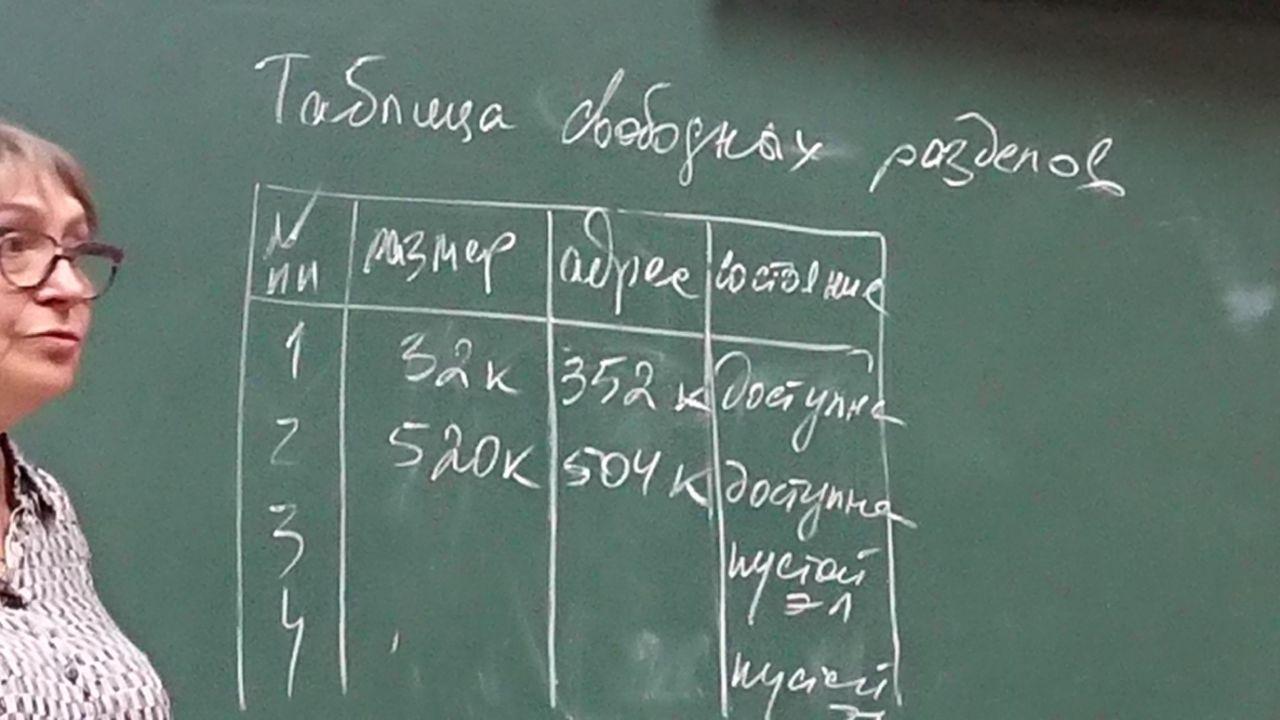 Таблица свободных разделов
№ пп размер адрес состояние
1 32к 352к доступна
2 520к 504к доступна
3 пустой эл
4 пустой эл